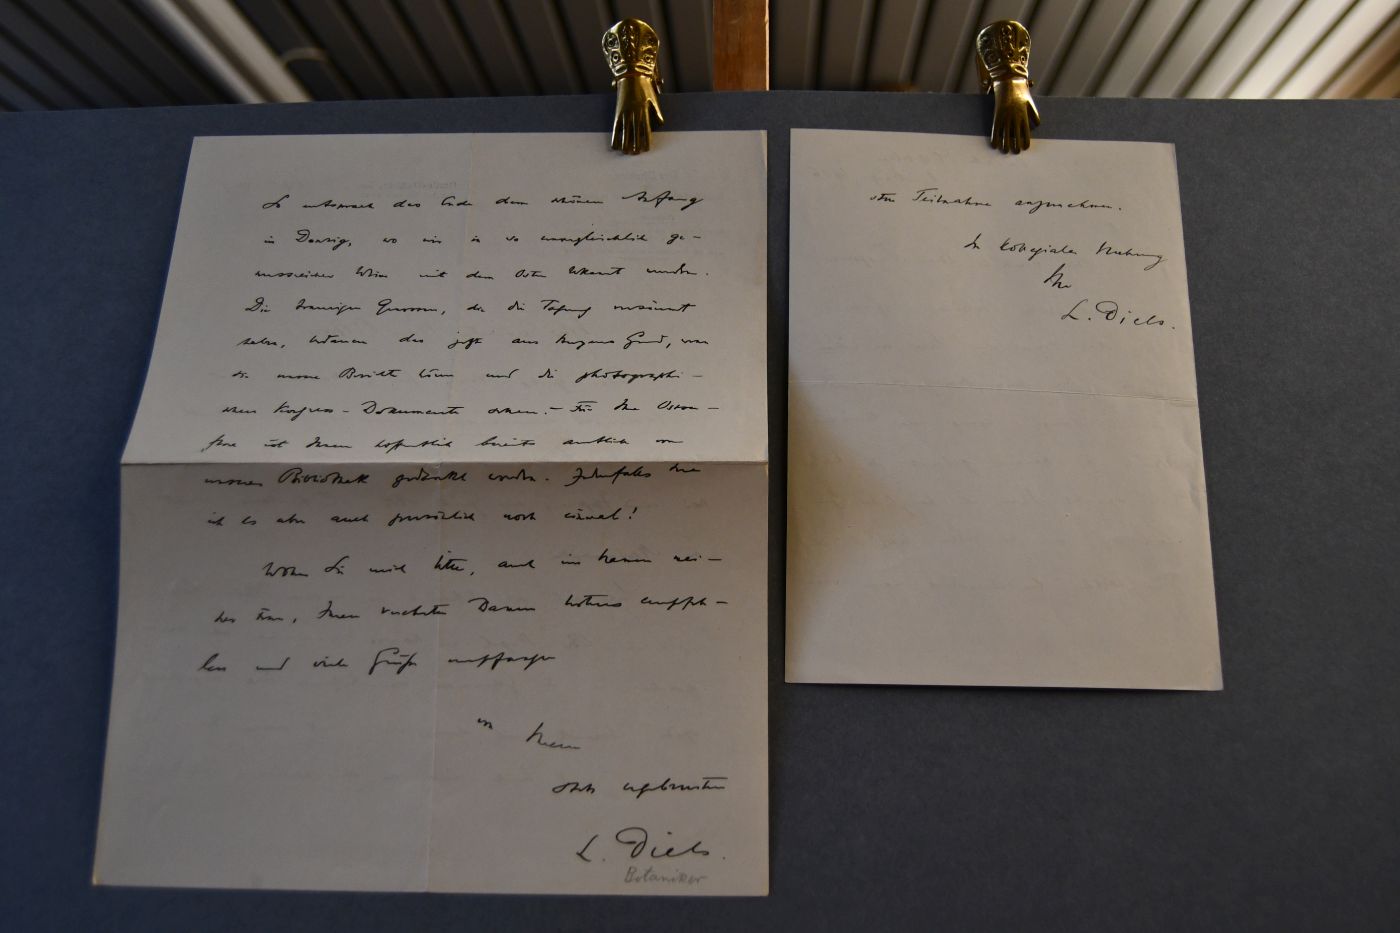 So entsprach das Ende dem schönen Anfang
in Danzig, wo wir in so unvergleichlich ge-
nussreicher Weise mit dem Osten bekannt wurden.
Die traurigen Genossen, die die Tagung versäumt
haben, bedauern das jetzt aus Grund, wenn
sie unsere Berichte hören und die photographi-
schen Kongress-Dokumente sehen. – Für Ihre
ist Ihnen hoffentlich bereits amtlich von
unserer Bibliothek gedankt worden. Jedenfalls tue
ich es aber auch persönlich noch einmal!
Wollen Sie mich bitte, auch im Namen mei-
ner Frau, Ihren verehrten Damen bestens empfeh-
len und viele Grüsse empfangen
von Ihrem
stets ergebensten
L. Diels.
Botaniker
Ihre Teilnahme anzunehmen.
In kollegialer
Ihr
L. Diels.